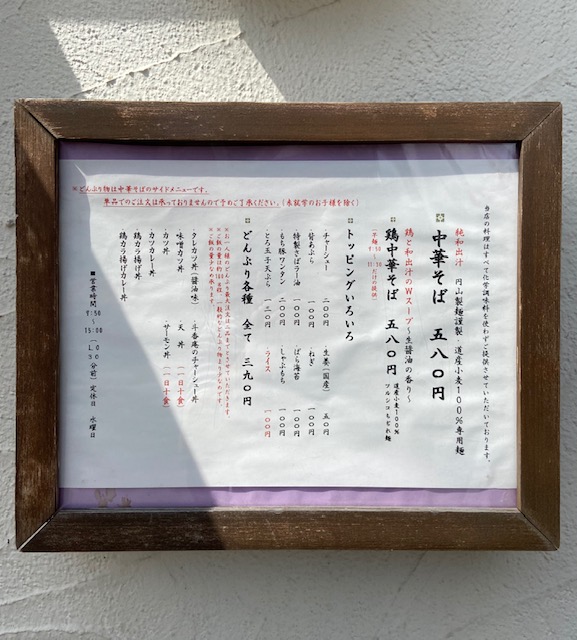 当店の料理はすべて化学調味料を使わずご提供させていただいております。
純和出汁 円山製麺謹製・道産小麦100%専用麺
中華そば 五八〇円
鶏と和出汁のWスープ～生醤油の香り～
鶏中華そば 五八〇円
道産小麦100%
ツルシコもちれ麺
トッピングいろいろ
チャーシュー 二〇〇円
背あぶら 一〇〇円
特製さばラー油 一〇〇円
・もち豚ワンタン 二〇〇円
・とろ玉子天ぷら 一二〇円
・生姜(国産) 五〇円
・ねぎ 一〇〇円
・ばら海苔 一〇〇円
・しゃぶもち 一〇〇円
ライス 一〇〇円
どんぶり各種 全て 三九〇円
※お一人様のどんぶり最大注文は二品までとさせていただきます。
※ご飯の量は約180g程、一般的などんぶり物より少なめです。
※ご飯の量少なめ承ります。
・タレカツ丼(醤油味)
味噌カツ丼
・カツ丼
・カツカレー丼
鶏カラ揚げ丼
鶏カラ揚げカレー丼
・斗香庵のチャーシュー丼
・天丼 (一日十食)
・サーモン丼 (一日十食)
※どんぶり物は中華そばのサイドメニューです。
単品でのご注文は承っておりませんので予めご了承ください。(未就学のお子様を除く)
■営業時間 9:50～15:00(LO30分前)定休日 水曜日